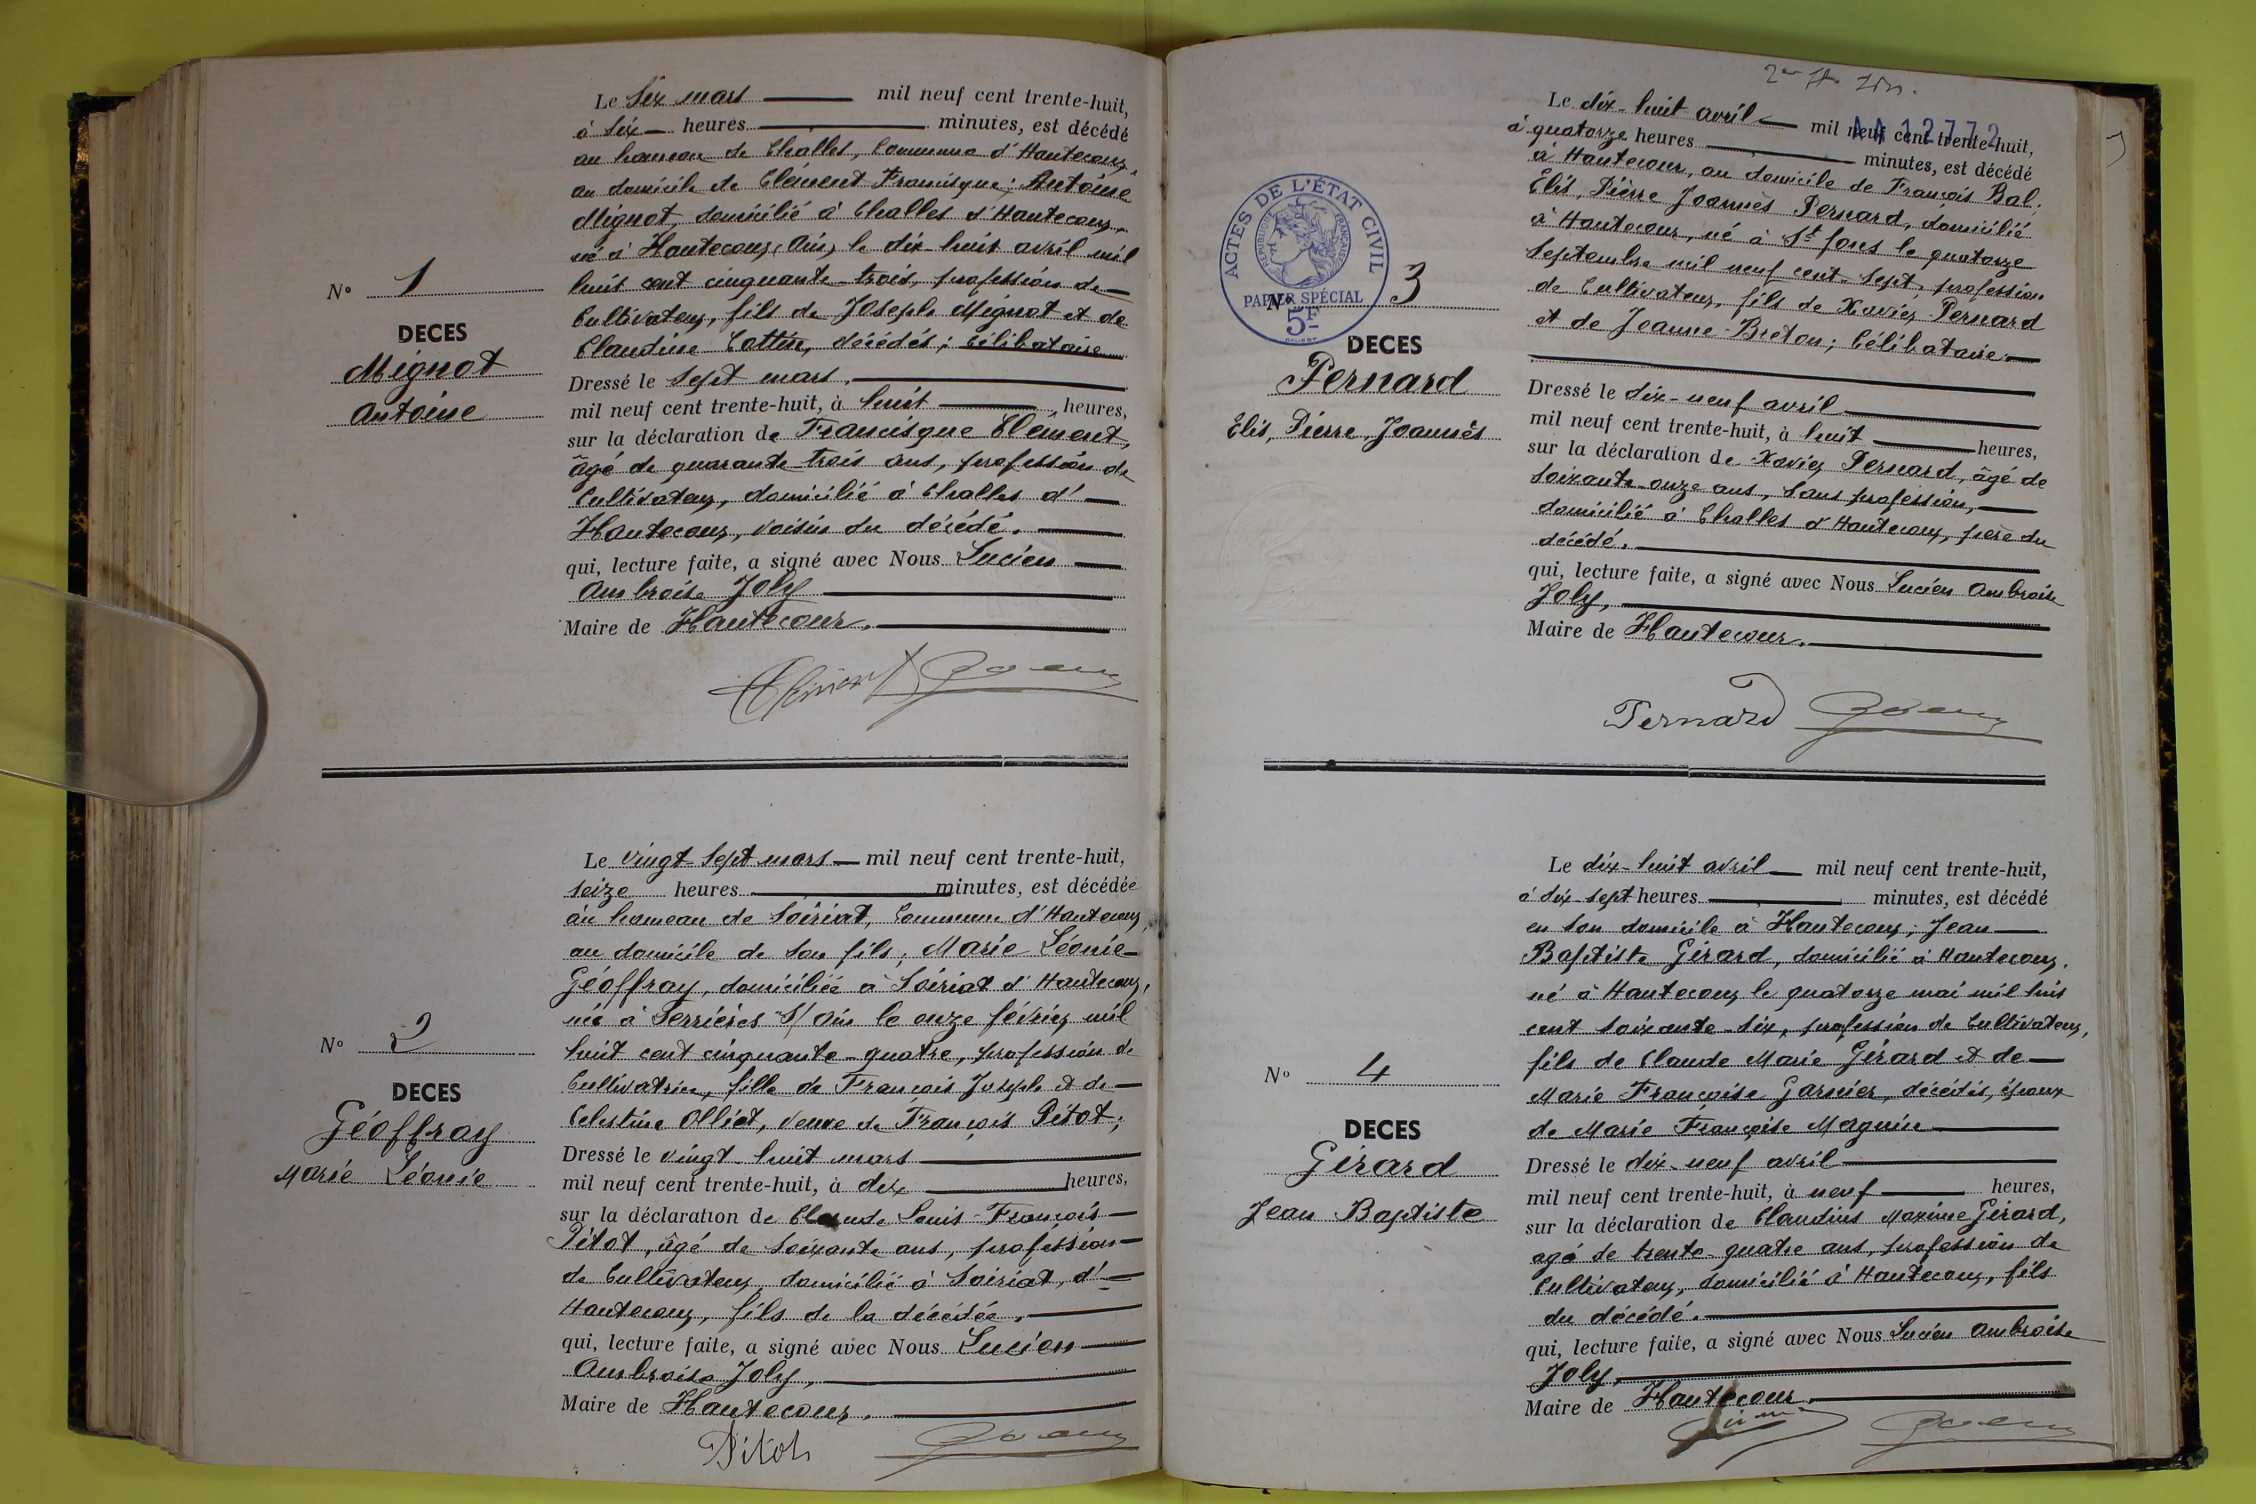 Le Six mars mil neuf cent trente-huit,
à Six heures minutes, est décédé
au hameau de Challes, Commune d'Hautecour,
au domicile de Clément Francisque; Antoine
Mignot, domicilié à Challes d'Hautecour,
né à Hautecour (Ain) le dix-huit avril mil
huit cent cinquante-trois, profession de
Cultivateur, fils de Joseph Mignot et de
Claudine Cottin, décédés; Célibataire
N° 1
DECES
Mignot
Antoine
Dressé le sept mars.
mil neuf cent trente-huit, à huit heures,
sur la déclaration de Francisque Clément,
âgé de quarante-trois ans, profession de
Cultivateur, domicilié à Challes d'
Hautecour, voisin du décédé.
qui, lecture faite, a signé avec Nous Lucien
Ambroise Joly
Maire de Hautecour.
Le vingt-sept mars mil neuf cent trente-huit,
seize heures minutes, est décédée
au hameau de Soiriat, Commune d'Hautecour,
au domicile de son fils; Marie Léonie
Géoffray, domiciliée à Soiriat d'Hautecour,
née à Serrières s/ Ain le onze février mil
huit cent cinquante-quatre, profession de
Cultivatrice, fille de François Joseph et de
Célestine Olliet, veuve de François Pitot;
N° 2
DECES
Géoffray
Marie Léonie
Dressé le vingt-huit mars
mil neuf cent trente-huit, à dix heures,
sur la déclaration de Claude Louis François
Pitot, âgé de soixante ans, profession
de Cultivateur, domicilié à Soiriat, d'
Hautecour, fils de la décédée.
qui, lecture faite, a signé avec Nous Lucien
Ambroise Joly,
Maire de Hautecour.
Pitot
AA 12772
Le dix-huit avril mil neuf cent trente-huit,
à quatorze heures minutes, est décédé
à Hautecour, au domicile de François Bal;
Elis, Pierre Joannès Pernard, domicilié
à Hautecour, né à St fons le quatorze
Septembre mil neuf cent sept, profession
de Cultivateur, fils de Xavier Pernard
et de Jeanne Breton; Célibataire
ACTES DE L'ÉTAT CIVIL
RÉPUBLIQUE FRANÇAISE
PAPIER SPÉCIAL
5F
N° 3
DECES
Pernard
Elis, Pierre, Joannès
Dressé le dix-neuf avril
mil neuf cent trente-huit, à huit heures,
sur la déclaration de Xavier Pernard, âgé de
soixante-onze ans, sans profession,
domicilié à Challes d'Hautecour, père du
décédé.
qui, lecture faite, a signé avec Nous Lucien Ambroise
Joly,
Maire de Hautecour.
Pernard
Le dix-huit avril mil neuf cent trente-huit,
à dix-sept heures minutes, est décédé
en son domicile à Hautecour; Jean
Baptiste Girard, domicilié à Hautecour,
né à Hautecour le quatorze mai mil huit
cent soixante-six, profession de Cultivateur,
fils de Claude Marie Girard et de
Marie Françoise Garnier, décédés, époux
de Marie Françoise Magnin
N° 4
DECES
Girard
Jean Baptiste
Dressé le dix-neuf avril
mil neuf cent trente-huit, à neuf heures,
sur la déclaration de Claudius Maxime Girard,
agé de trente-quatre ans, profession de
Cultivateur, domicilié à Hautecour, fils
du décédé.
qui, lecture faite, a signé avec Nous Lucien Ambroise
Joly,
Maire de Hautecour.